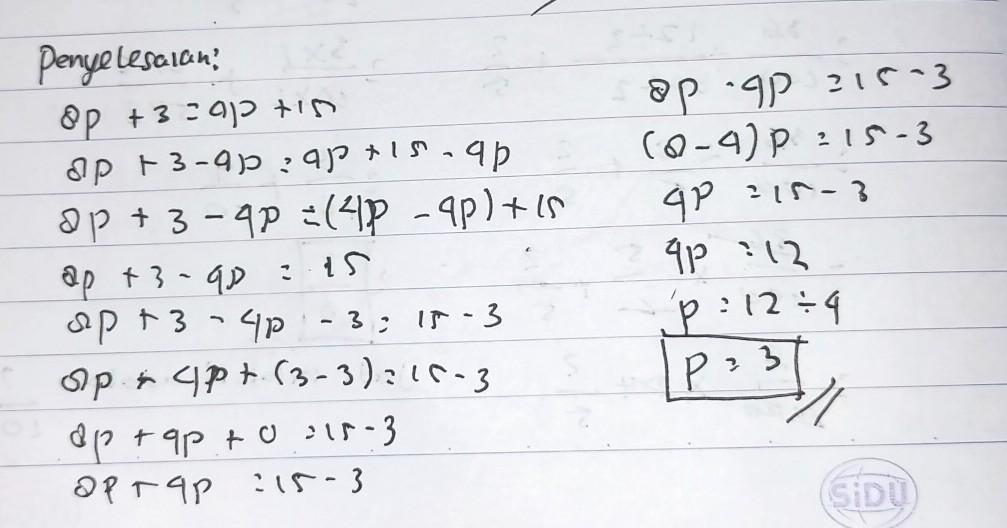 Penyelesaian:
8p + 3 = 4p + 15
8p + 3 - 4p = 4p + 15 - 4p
8p + 3 - 4p = (4p - 4p) + 15
8p + 3 - 4p = 15
8p + 3 - 4p - 3 = 15 - 3
8p + 4p + (3 - 3) = 15 - 3
8p + 4p + 0 = 15 - 3
8p + 4p = 15 - 3
8p - 4p = 15 - 3
(8 - 4) p = 15 - 3
4p = 15 - 3
4p = 12
p = 12 ÷ 4
p = 3
SiDU